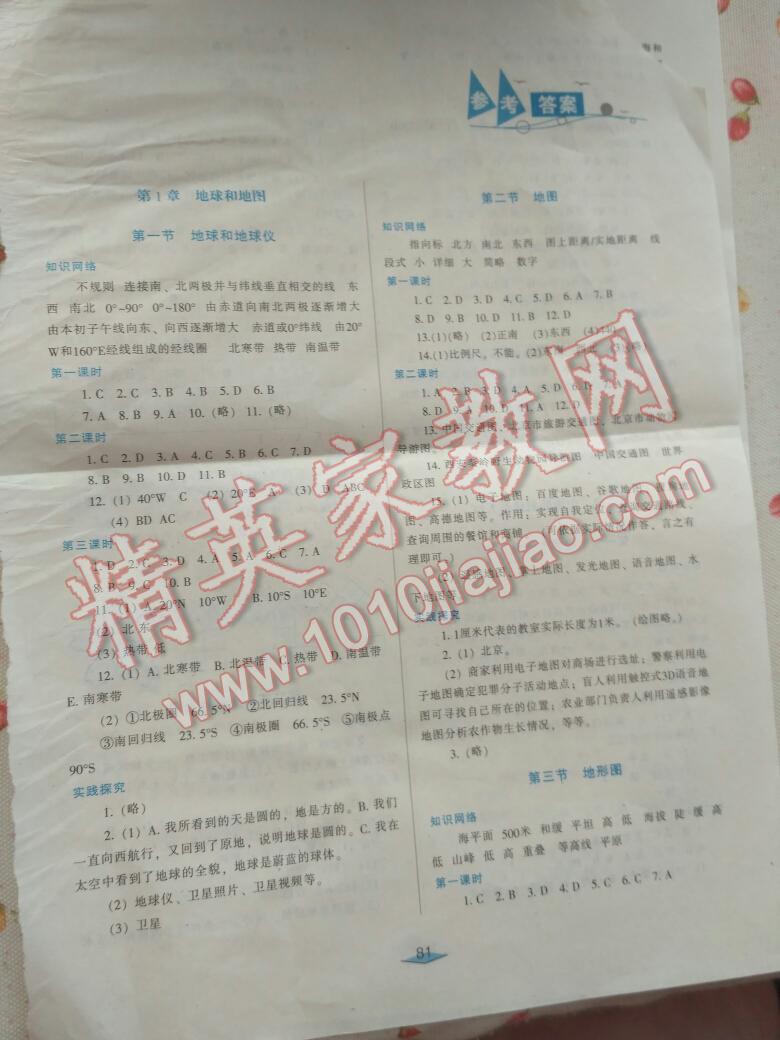 参考答案
第1章 地球和地图
第一节 地球和地球仪
知识网络
不规则 连接南、北两极并与纬线垂直相交的线 东
西 南北 0°~90° 0°~180° 由赤道向南北两极逐渐增大
由本初子午线向东、向西逐渐增大 赤道或0°纬线 由20°
W和160°E经线组成的经线圈 北寒带 热带 南温带
第一课时
1. C 2. C 3. B 4. B 5. D 6. B
7. A 8. B 9. A 10.(略) 11.(略)
第二课时
1. C 2. D 3. A 4. C 5. B 6. C 7. D
8. B 9. B 10. D 11. B
12. (1) 40°W C (2) 20°E A (3) D ABC
(4) BD AC
第三课时
1. D 2. C 3. D 4. A 5. A 6. C 7. A
8. B 9. C 10. B
11. (1) A. 20°N 10°W B. 10°S 10°E
(2) 北 东
(3) 热带 低
12. (1) A. 北寒带 B. 北温带 C. 热带 D. 南温带
E. 南寒带
(2) ①北极圈 66.5°N ②北回归线 23.5°N
③南回归线 23.5°S ④南极圈 66.5°S ⑤南极点
90°S
实践探究
1.(略)
2. (1) A. 我所看到的天是圆的，地是方的。B. 我们
一直向西航行，又回到了原地，说明地球是圆的。C. 我在
太空中看到了地球的全貌，地球是蔚蓝的球体。
(2) 地球仪、卫星照片、卫星视频等。
(3) 卫星
第二节 地图
知识网络
指向标 北方 南北 东西 图上距离/实地距离 线
段式 小 详细 大 简略 数字
第一课时
1. C 2. D 3. D 4. C 5. D 6. A 7. B
8. D 9. B 10. D 11. B 12. D
13.(1)(略) (2)正南 (3)东西 (4)440
14.(1)比例尺。不能。(2)东南 西北 (3)略
第二课时
1. A 2. B 3. D 4. A 5. D 6. D 7. A
8. D 9. A 10. D 11. A 12. D
13. 中国交通图、北京市旅游交通图、北京市动物
导游图。
14. 西安秦岭野生动物园导游图 中国交通图 世界
政区图
15. (1) 电子地图：百度地图、谷歌地图、搜狗地
图、高德地图等。作用：实现自我定位、查询交通路线、
查询周围的餐馆和商铺。(可依据实际情况作答，言之有
理即可。)
(2) 遥感地图、掌上地图、发光地图、语音地图、水
下地图等
实践探究
1. 1厘米代表的教室实际长度为1米。(绘图略。)
2. (1) 北京。
(2) 商家利用电子地图对商场进行选址；警察利用电
子地图确定犯罪分子活动地点；盲人利用触控式3D语音地
图可寻找自己所在的位置；农业部门负责人利用遥感影像
地图分析农作物生长情况，等等。
3.(略)
第三节 地形图
知识网络
海平面 500米 和缓 平坦 高 低 海拔 陡 缓 高
低 山峰 低 高 重叠 等高线 平原
第一课时
1. C 2. B 3. D 4. D 5. C 6. C 7. A
81
精英家教网
www.1010jiajiao.com